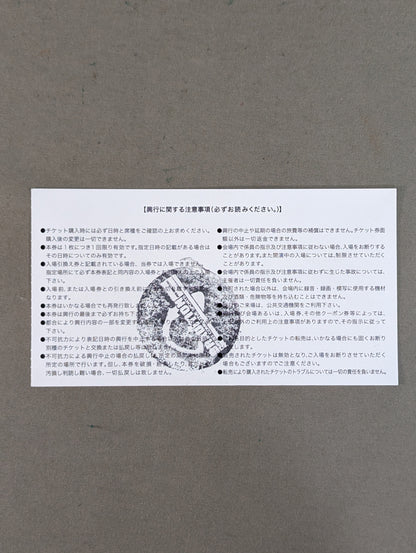 【興行に関する注意事項(必ずお読みください。)】
●チケット購入時には必ず日時と席種をご確認の上お求めください。
購入後の変更は一切できません。
●本券は1枚につき1回限り有効です。指定日時の記載がある場合は
その日時についてのみ有効です。
●入場引換え券と記載されている場合、当券では入場できません。
指定場所にて必ず本券表記と同内容の入場券と
●入場前、または入場券との引き換え前に
●本券はいかなる場合でも再発行致し
●本券は興行の最後まで必ずお持ち下
●都合により興行内容の一部を変更す
●不可抗力により表記日時の興行を中止す
別種のチケットと交換または払戻し等
●不可抗力による興行中止の場合の払戻し
所定の場所で行います。但し、本券を破損・紛失したり、
汚損し判読し難い場合、一切払戻しは致しません。
●興行の中止や延期の場合の旅費等の補償はできません。チケット券面
額以外は一切返金できません。
●会場内で係員の指示及び注意事項に従わない場合、入場をお断りする
ことがあります。また開演中の入場については、制限させていただく
ことがあります。
●会場内で係員の指示及び注意事項に従わずに生じた事故について、
主催者は一切責任を負いません。
●許可された場合以外、会場内に録音・録画・模写に使用する機材
及び酒類・危険物等を持ち込むことはできません。
ご来場は、公共交通機関をご利用下さい。
及び会場あるいは、入場券、その他クーポン券等によっては、
ご利用上の注意事項がありますので、その指示に従って
下さい。
目的としたチケットの転売は、いかなる場合にも固くお断り
します。
転売されたチケットは無効となり、ご入場をお断りさせていただく
場合もございますのでご注意ください。
●転売により購入されたチケットのトラブルについては一切の責任を負いません。